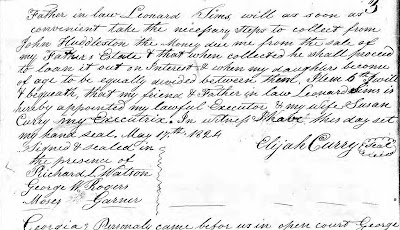 3
Father in law Leonard Sims will as soon as
convenient take the necessary steps to collect from
John Huddleston the Money due me from the sale of
my Father's Estate & that when collected he shall proceed
to loan it out on Interest & when my daughters become
of age to be equally divided between them, Item 6th I will
& bequeath, that my friend & Father in law Leonard Sims is
hereby appointed my lawful Executor & my wife Susan
Curry my Executrix. In witness I have this day set
my hand seal, May 17th 1824
Signed & sealed in Elijah Curry Seal
the presence of
Richard L. Watson
George W. Rogers
Moses Garner
Georgia; Personaly came before us in open court George